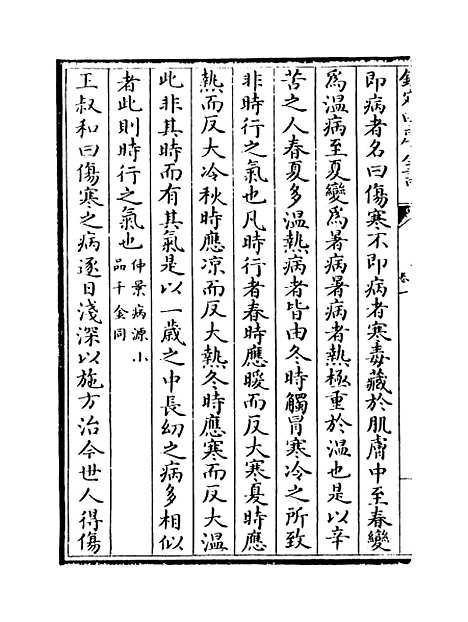 欽定四庫全書
卷一
即病者名曰傷寒不即病者寒毒藏於肌膚中至春變
為溫病至夏變為暑病暑病者熱極重於溫也是以辛
苦之人春夏多溫熱病者皆由冬時觸冒寒冷之所致
非時行之氣也凡時行者春時應暖而反大寒夏時應
熱而反大冷秋時應凉而反大熱冬時應寒而反大溫
此非其時而有其氣是以一歲之中長幼之病多相似
者此則時行之氣也仲景病源小
品千金同
王叔和曰傷寒之病逐日淺深以施方治今世人得傷